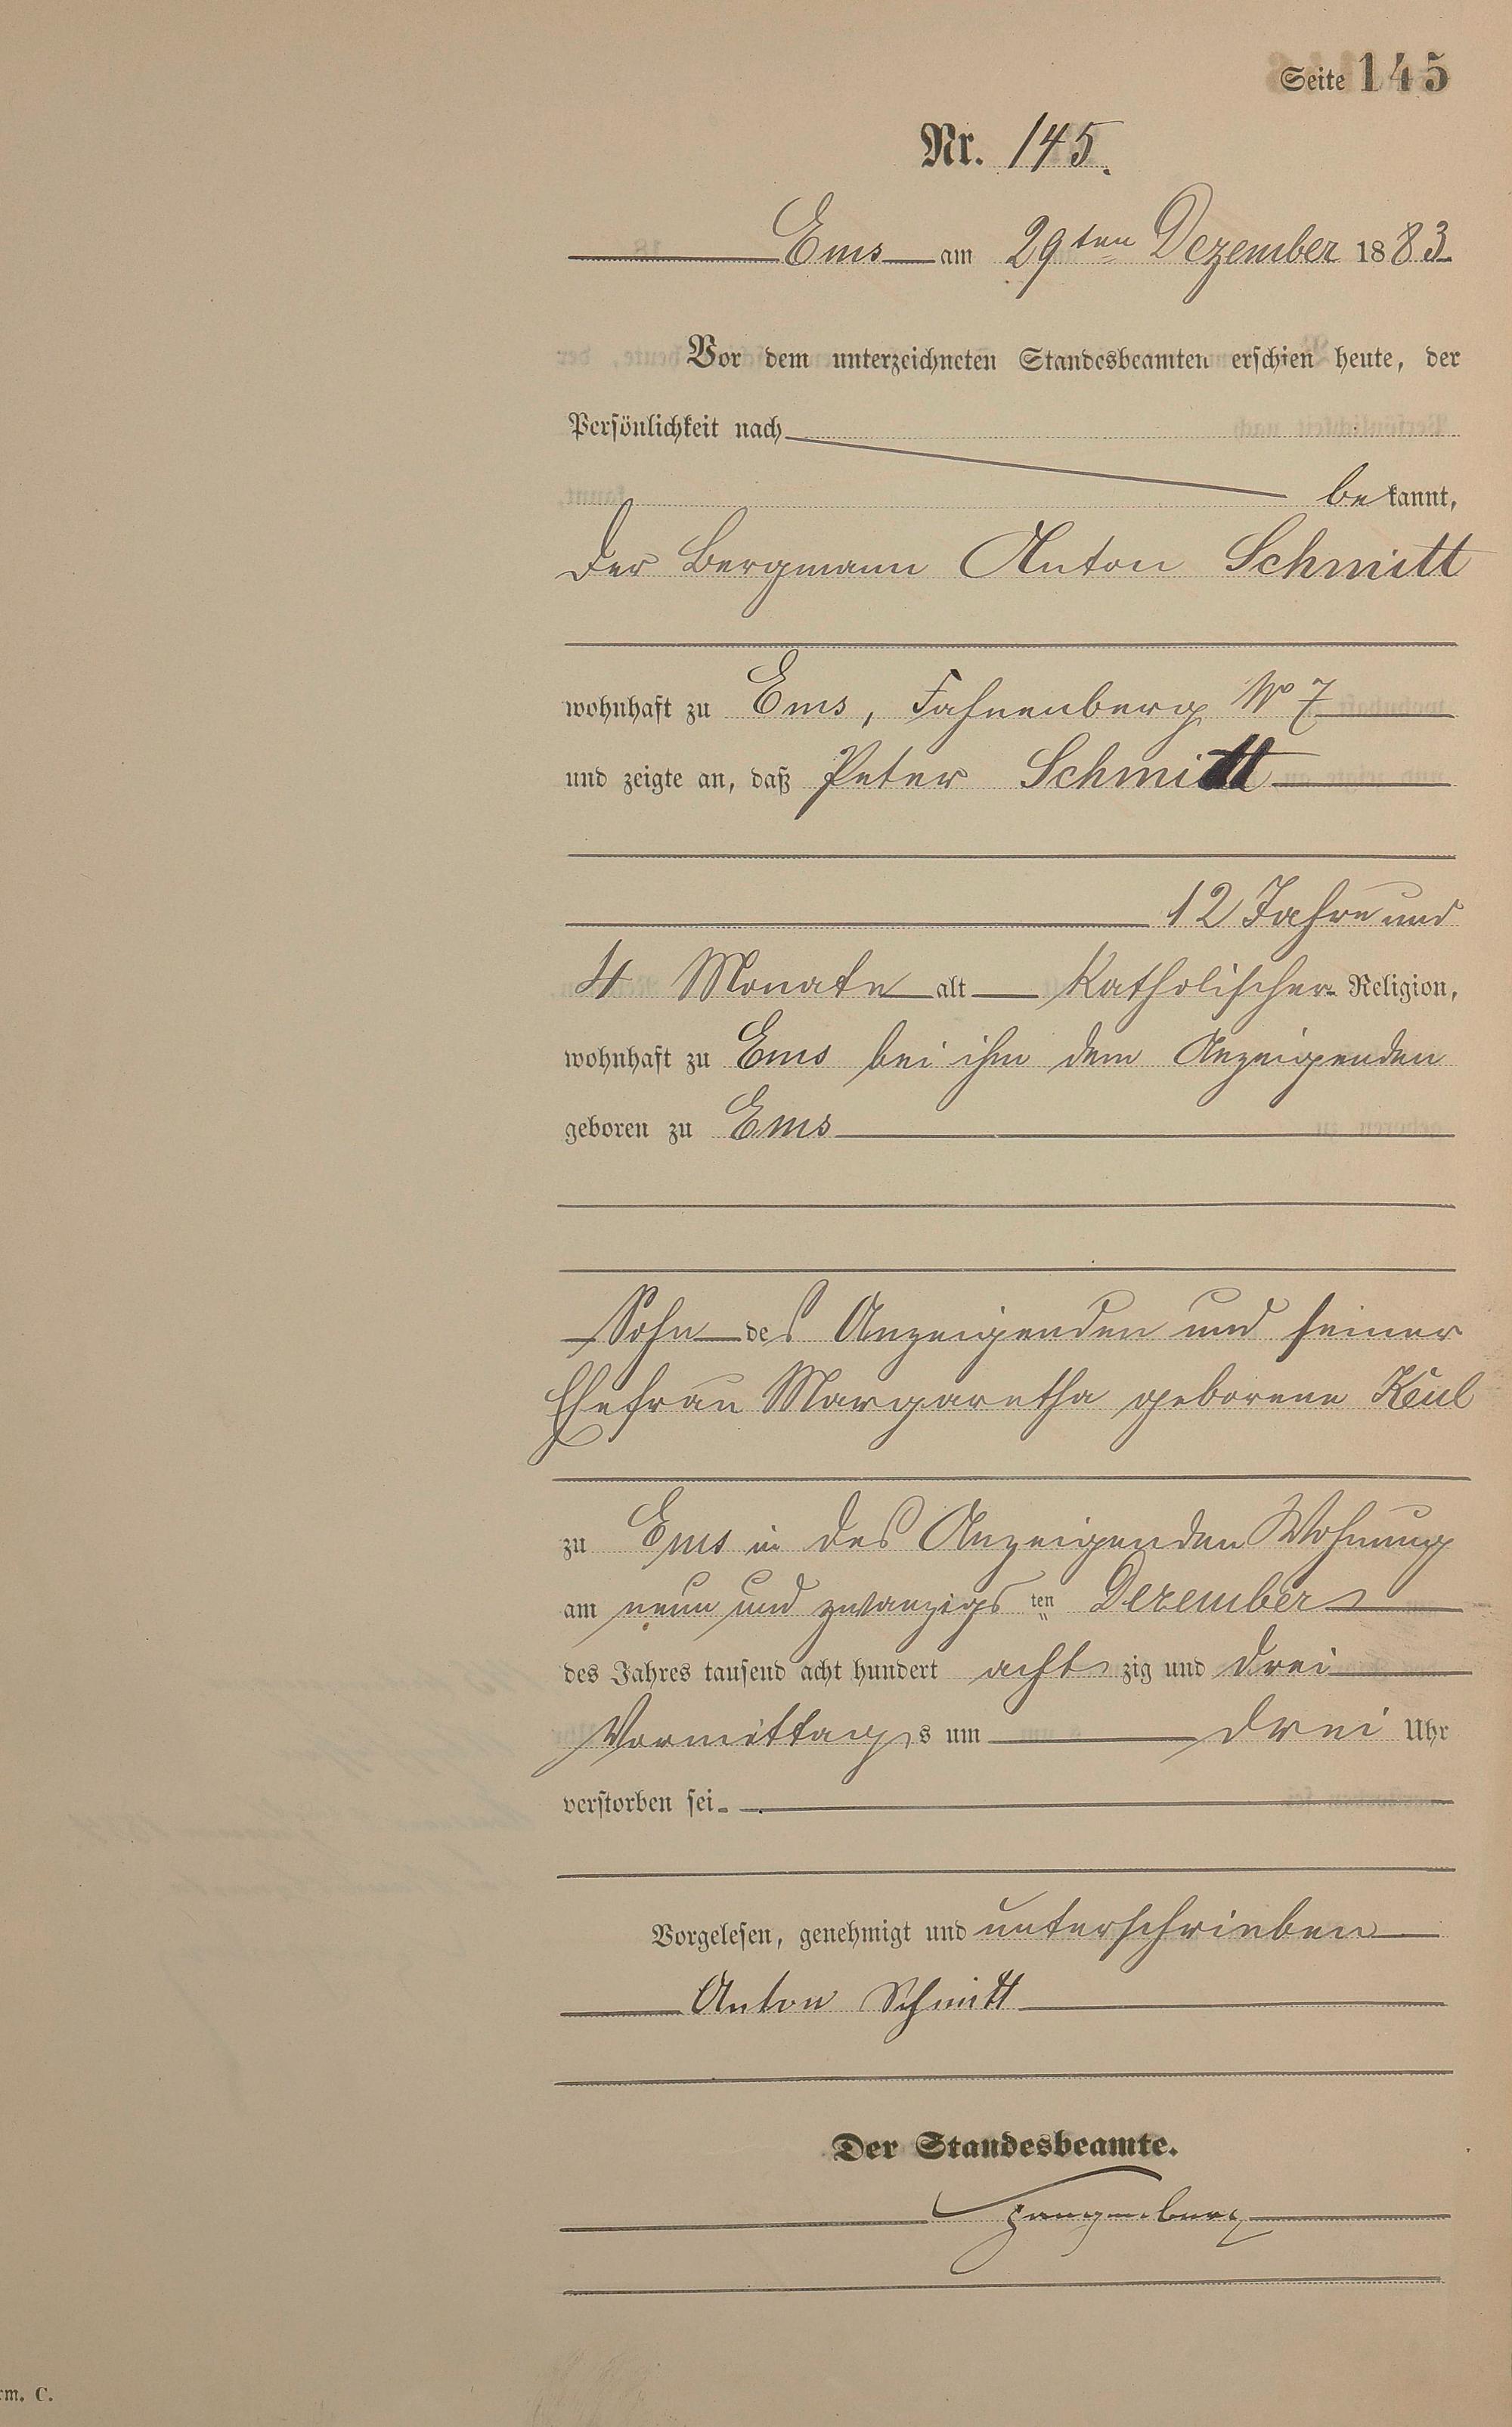 Seite 145
Nr. 145.
Ems am 29ten Dezember 1883
Vor dem unterzeichneten Standesbeamten erschien heute, der
Persönlichkeit nach
bekannt,
der Bergmann Anton Schmitt
wohnhaft zu Ems, Fahnenberg No 7
und zeigte an, daß Peter Schmitt
12 Jahre und
4 Monate alt Katholischer Religion,
wohnhaft zu Ems bei ihm dem Anzeigenden
geboren zu Ems
Sohn des Anzeigenden und seiner
Ehefrau Margaretha geborene Keul
zu Ems in des Anzeigenden Wohnung
am neun und zwanzigsten Dezember
des Jahres tausend acht hundert achtzig und drei
Vormittags um drei Uhr
verstorben sei.
Vorgelesen, genehmigt und unterschrieben
Anton Schmitt
Der Standesbeamte.
rm. C.